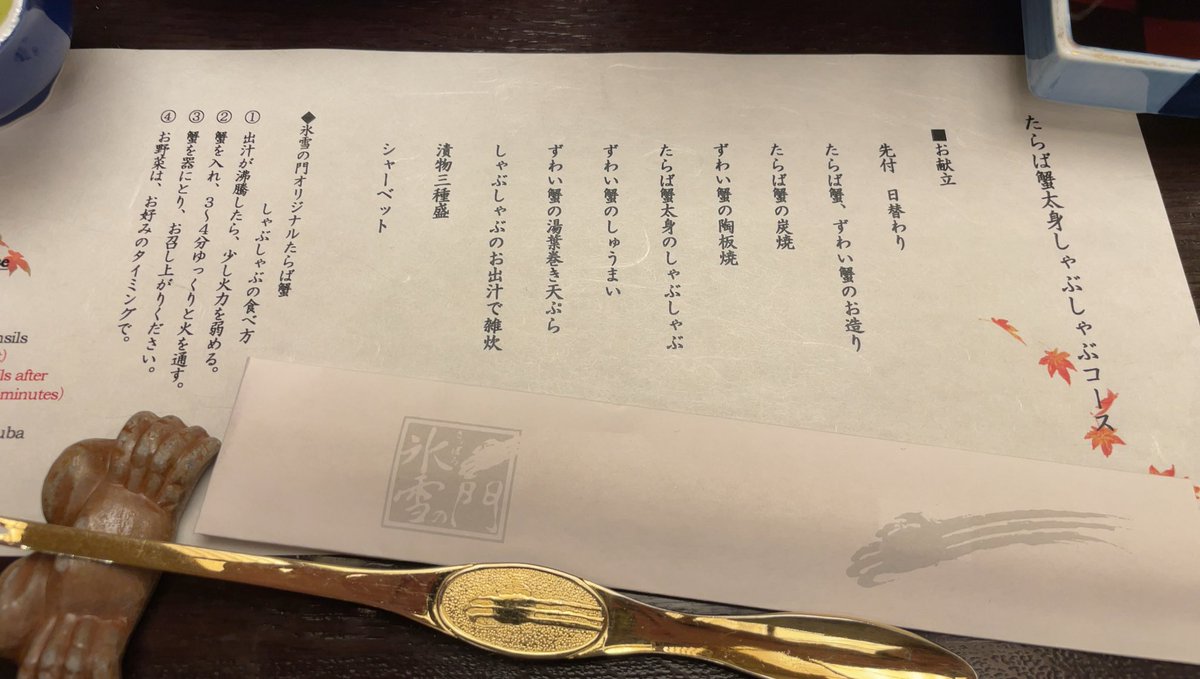 たらば蟹太身しゃぶしゃぶコース
■お献立
先付 日替わり
たらば蟹、ずわい蟹のお造り
たらば蟹の炭焼
ずわい蟹の陶板焼
たらば蟹太身のしゃぶしゃぶ
ずわい蟹のしゅうまい
ずわい蟹の湯葉巻き天ぷら
しゃぶしゃぶのお出汁で雑炊
漬物三種盛
シャーベット
◆氷雪の門オリジナルたらば蟹
しゃぶしゃぶの食べ方
① 出汁が沸騰したら、少し火力を弱める。
② 蟹を入れ、3～4分ゆっくりと火を通す。
③ 蟹を器にとり、お召し上がりください。
④ お野菜は、お好みのタイミングで。
ls after
minutes)
氷雪の門